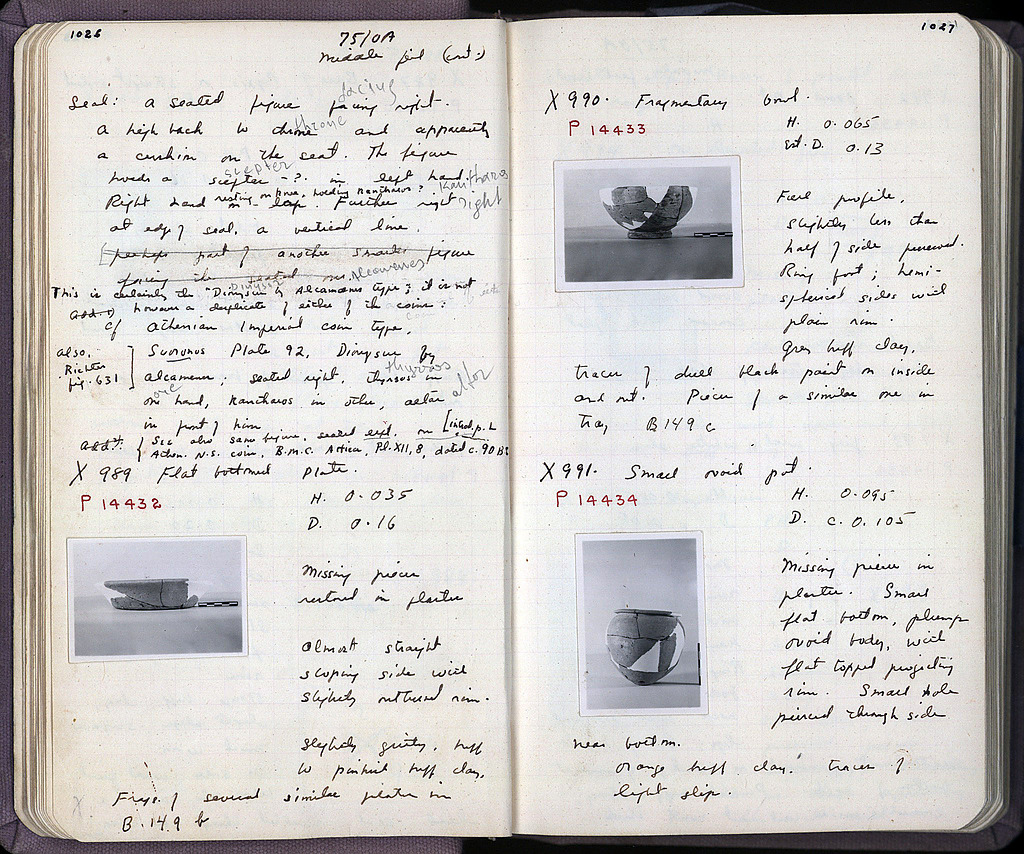 1026
75/OA
Middle fill (cont.)
Seal: a seated figure facing right.
facing
A high back to throne and apparently
throne
a cushion on the seat. The figure
holds a scepter - ? in left hand.
scepter
Right hand in lap. Further right
resting on knee, holding kantharos?
kantharos
right
at edge of seal, a vertical line.
[perhaps part of another smaller figure
facing the seated one.
Dionysus Alcamenes
This is certainly the "Dionysus by Alcamenes type"; it is not
add.) however a duplicate of either of the coins:
cf Athenian Imperial coin type,
also, Richter fig. 631
Svoronos Plate 92, Dionysus by
Alcamenes; seated right, thyrsos in
thyrsos
one hand, kantharos in other, altar
one
altar
in front of him
add: See also same figure, seated left, on
Athen. N.S. coin, B.M.C. Attica, Pl. XII, 8, dated c. 90 B
X 989 Flat bottomed plate.
P 14432
H. 0.035
D. 0.16
Missing pieces
restored in plaster
Almost straight
sloping side with
slightly outturned rim.
Slightly gritty, buff
to pinkish buff clay.
X
Frags. of several similar plates in
B 149 b
1027
X 990. Fragmentary bowl.
P 14433
H. 0.065
est. D. 0.13
Full profile,
slightly less than
half of side preserved.
Ring foot; hemi-
spherical sides with
plain rim.
Grey buff clay,
traces of dull black paint on inside
and out. Pieces of a similar one in
tray B 149 c
X 991. Small ovoid pot.
P 14434
H. 0.095
D. c. 0.105
Missing pieces in
plaster. Small
flat bottom, plump
ovoid body, with
flat topped projecting
rim. Small hole
pierced through side
near bottom.
Orange buff clay. traces of
light slip.